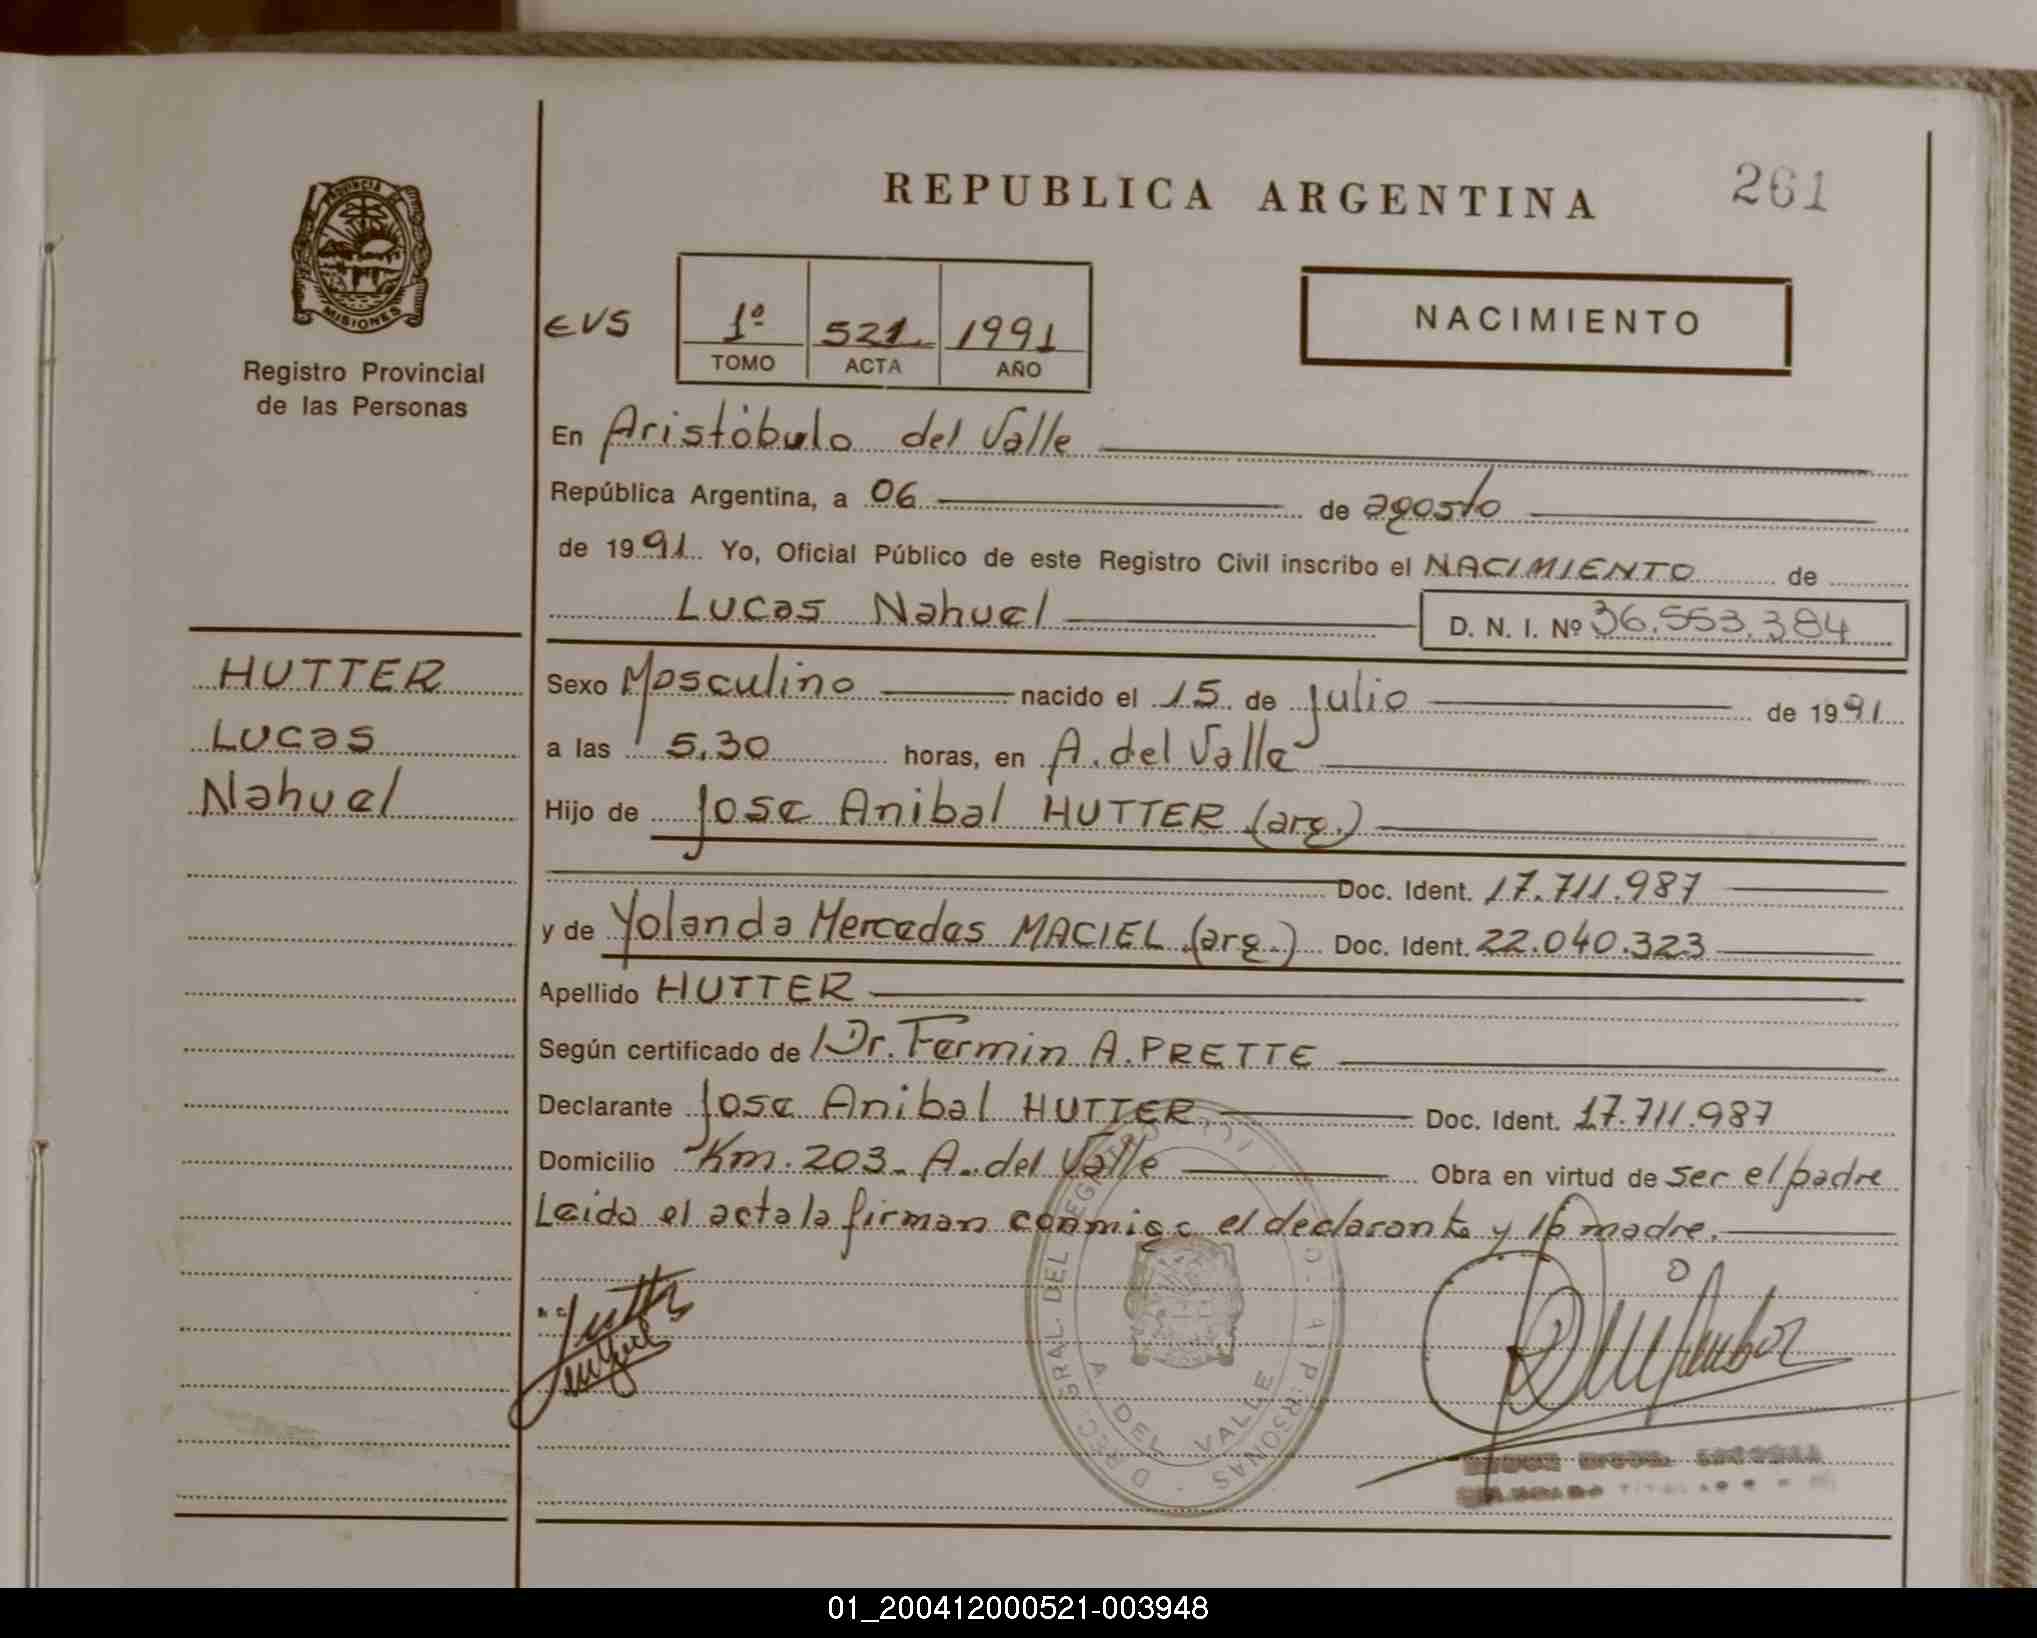 REPUBLICA ARGENTINA
261
PROVINCIA DE
MISIONES
Registro Provincial
de las Personas
EVS
1º 521. 1991
TOMO ACTA AÑO
NACIMIENTO
En Aristóbulo del Valle
República Argentina, a 06 de agosto
de 1991. Yo, Oficial Público de este Registro Civil inscribo el NACIMIENTO de
Lucas Nahuel D. N. I. Nº 36.553.384
HUTTER
Lucas
Nahuel
Sexo Masculino nacido el 15 de Julio de 1991
a las 5,30 horas, en A. del Valle
Hijo de Jose Anibal HUTTER (arg.)
Doc. Ident. 17.711.987
y de Yolanda Mercedes MACIEL (arg.) Doc. Ident. 22.040.323
Apellido HUTTER
Según certificado de Dr. Fermin A. PRETTE
Declarante Jose Anibal HUTTER, Doc. Ident. 17.711.987
Domicilio Km. 203- A. del Valle Obra en virtud de ser el padre
Leida el acta la firman conmigo el declarante y la madre.
A. DEL VALLE
01_200412000521-003948